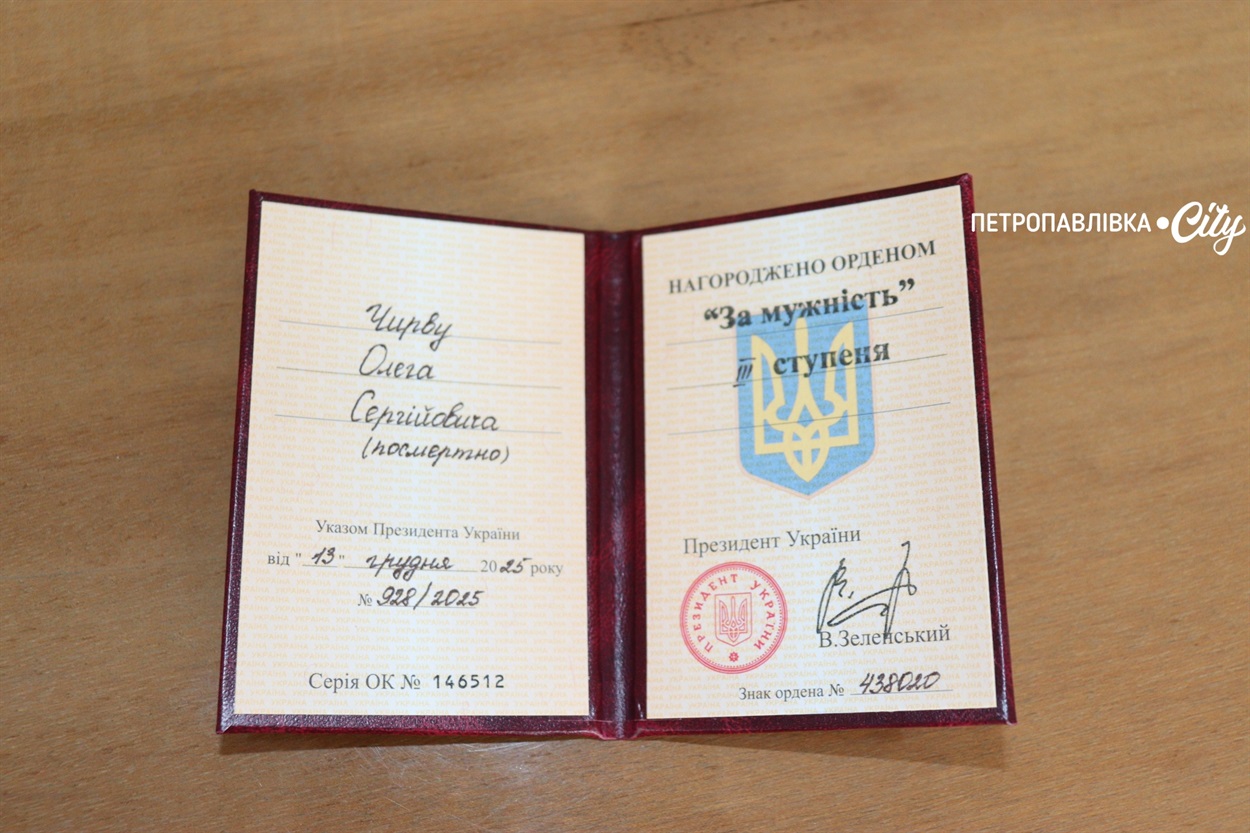 ПЕТРОПАВЛІВКА •City
Чирву
Олега
Сергійовича
(посмертно)
Указом Президента України
від "13" грудня 2025 року
№ 928/2025
Серія ОК № 146512
НАГОРОДЖЕНО ОРДЕНОМ
“За мужність”
III ступеня
Президент України
ПРЕЗИДЕНТ УКРАЇНИ
В.Зеленський
Знак ордена № 438020